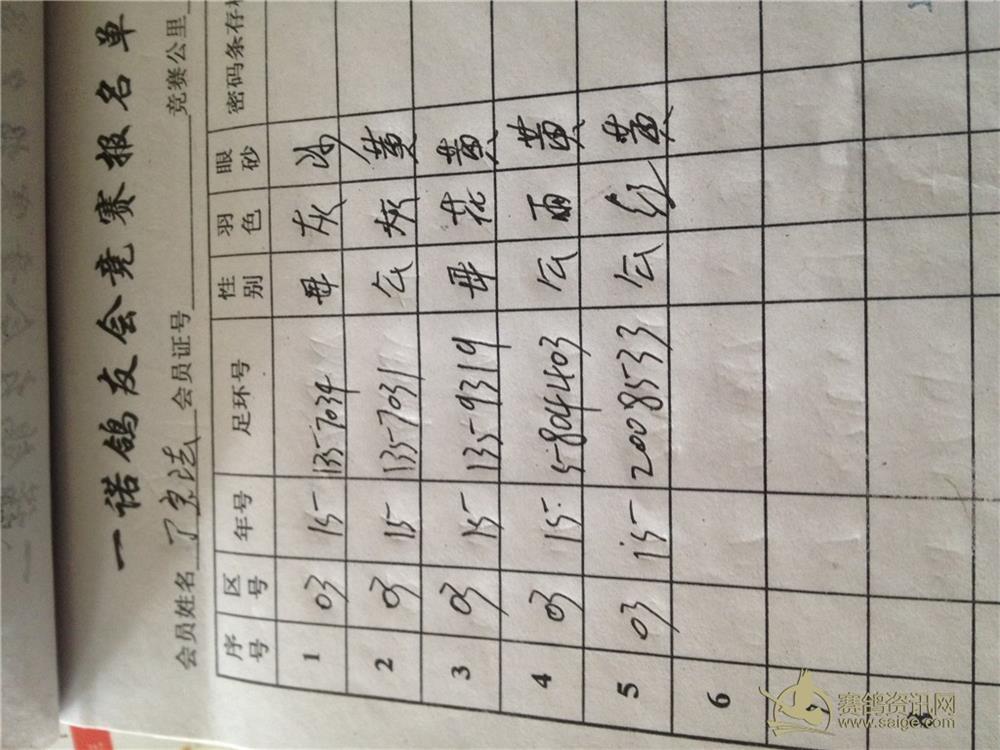 一诺鸽友会竞赛报名单
会员姓名 会员证号 竞赛公里
序号 区号 年号 足环号 性别 羽色 眼砂 密码条存根
1 03 15- 1357034 母 灰 沙
2 03 15 1357031 公 灰 黄
3 03 15 1359319 母 花 黄
4 03 15- 5804403 公 雨 黄
5 03 15- 2008533 公 红 黄
6
赛鸽资讯网
www.saige.com